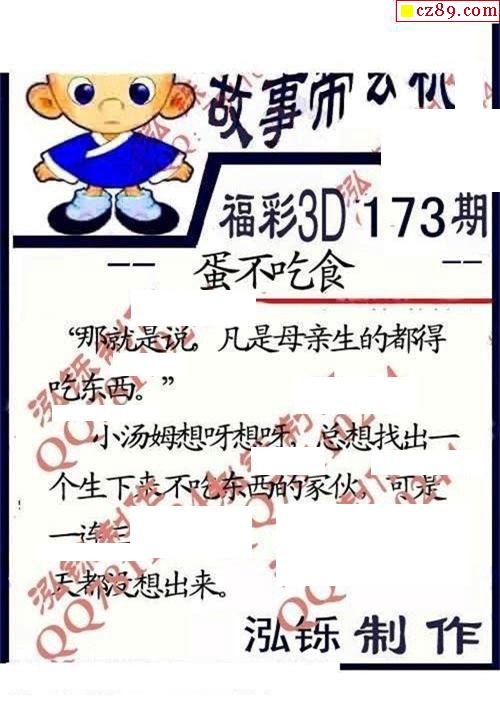 cz89.com
故事师
福彩3D 173期
蛋不吃食
“那就是说。凡是母亲生的都得
吃东西。”
小汤姆想呀想呀，总想找出一
个生下来不吃东西的家伙，可是
一连
天都没想出来。
泓铄制作